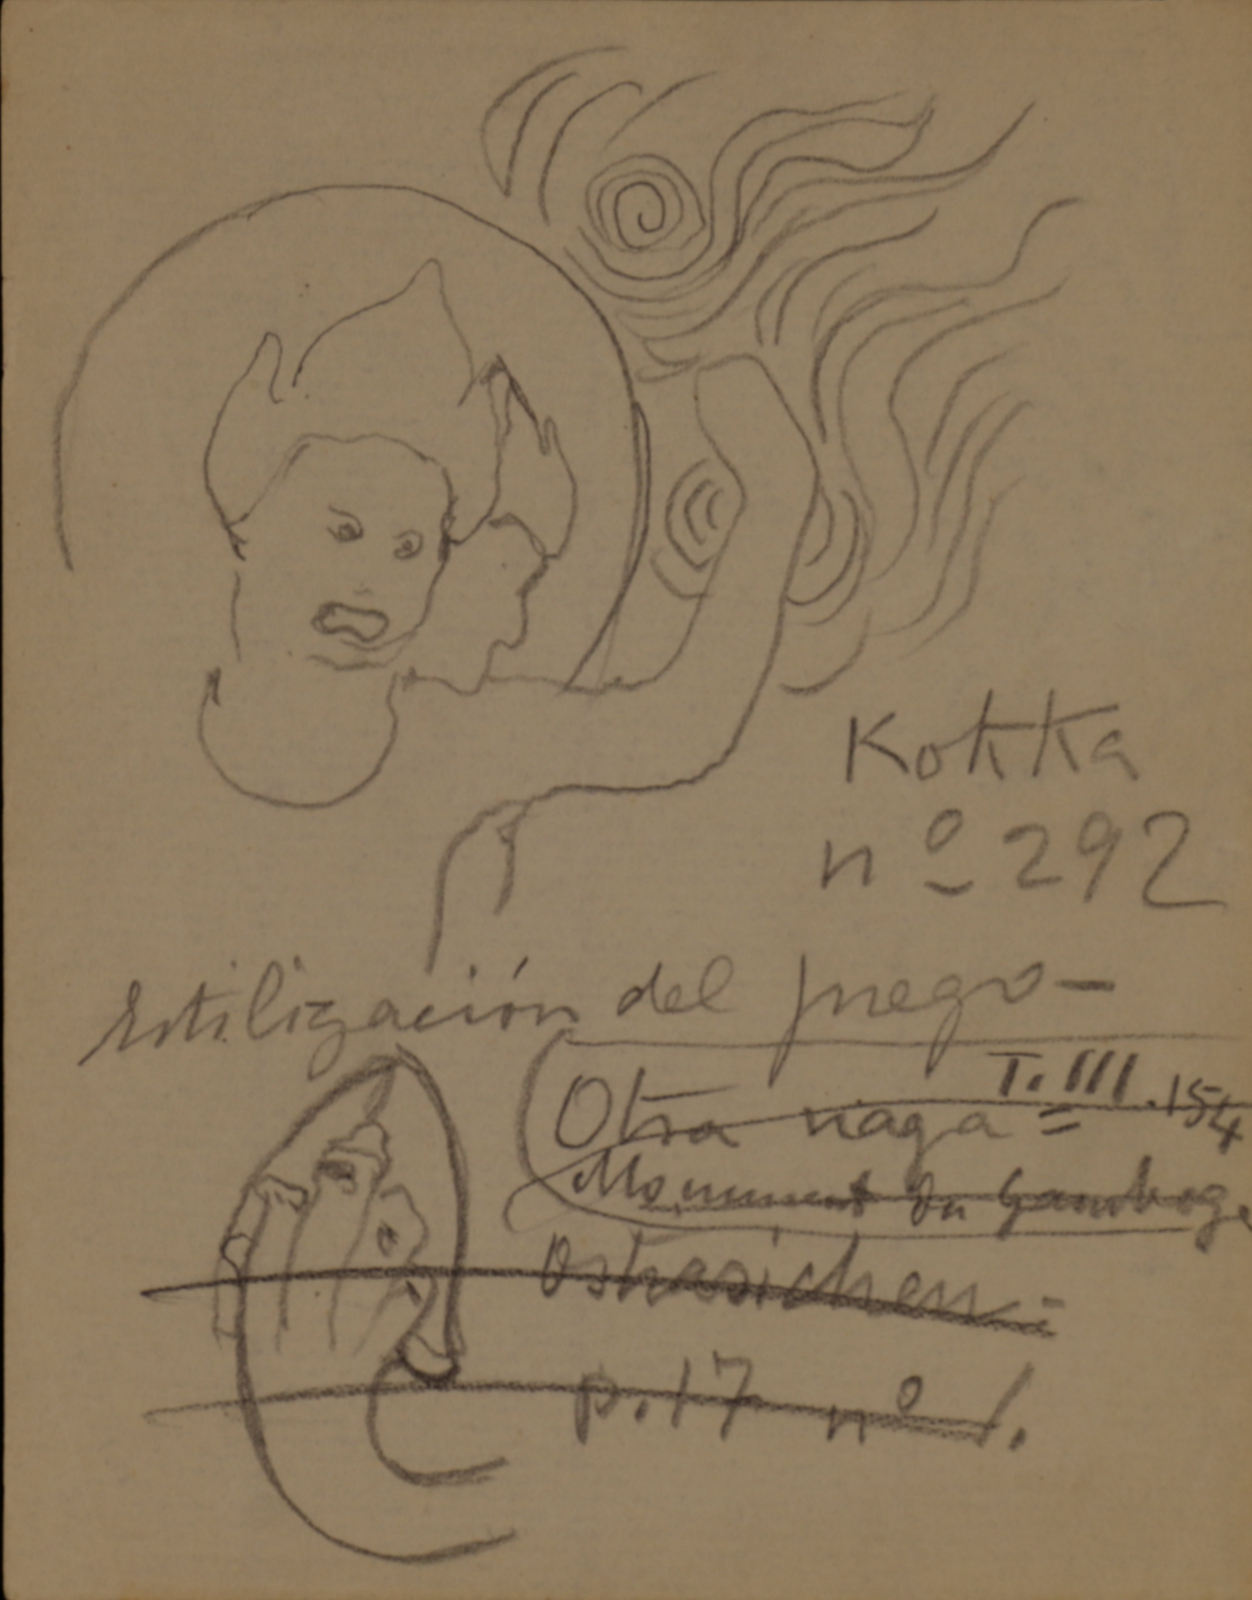 Kokka
nº 292
Estilización del fuego —
T. III. 154
Otra naga =
Monument du Cambodge
Ostasichen =
p. 17 nº 1.